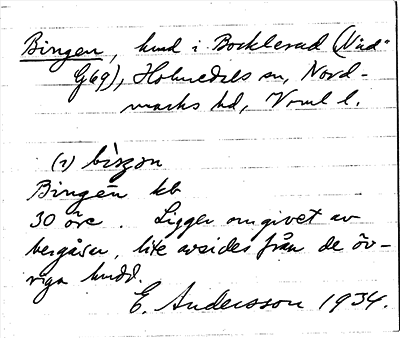 Bingen, hmd i Bocklerud (Väd"
G69), Holmedals sn, Nord-
marks hd, Vrml l.
(1) bìŋən
Bingen kb
30 öre. Ligger omgivet av
bergåsar, lite avsides från de öv-
riga hmdd.
E. Andersson 1934.